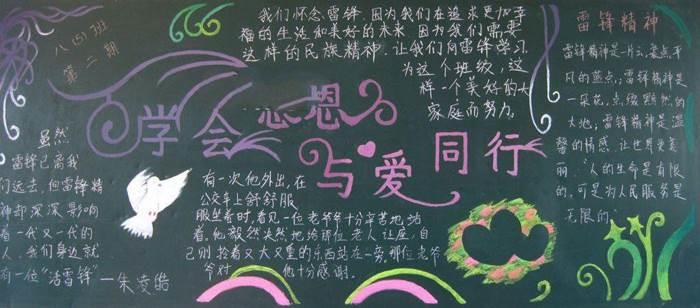 八(5)班
第二期
我们怀念雷锋,因为我们在追求更加幸
福的生活和美好的未来,因为我们需要
这样的民族精神。让我们向雷锋学习
为这个班级,这
样一个美好的大
家庭而努力。
学会感恩
与爱同行
虽然
雷锋已离我
们远去,但雷锋精
神却深深影响
着一代又一代的
人,我们身边就
有一位“活雷锋”—朱凌皓
有一次他外出,在
公交车上舒舒服
服坐着时,看见一位老爷爷十分辛苦地站
着。他毅然决然地给那位老人让座,自
己则拎着又大又重的东西站在一旁,那位老爷
爷对他十分感谢。
雷锋精神
雷锋精神是一片云,装点平
凡的蓝点;雷锋精神是
一朵花,点缀黯然的
大地;雷锋精神是温
馨的情感,让世界更美
丽。“人的生命是有限
的,可是为人民服务是
无限的”